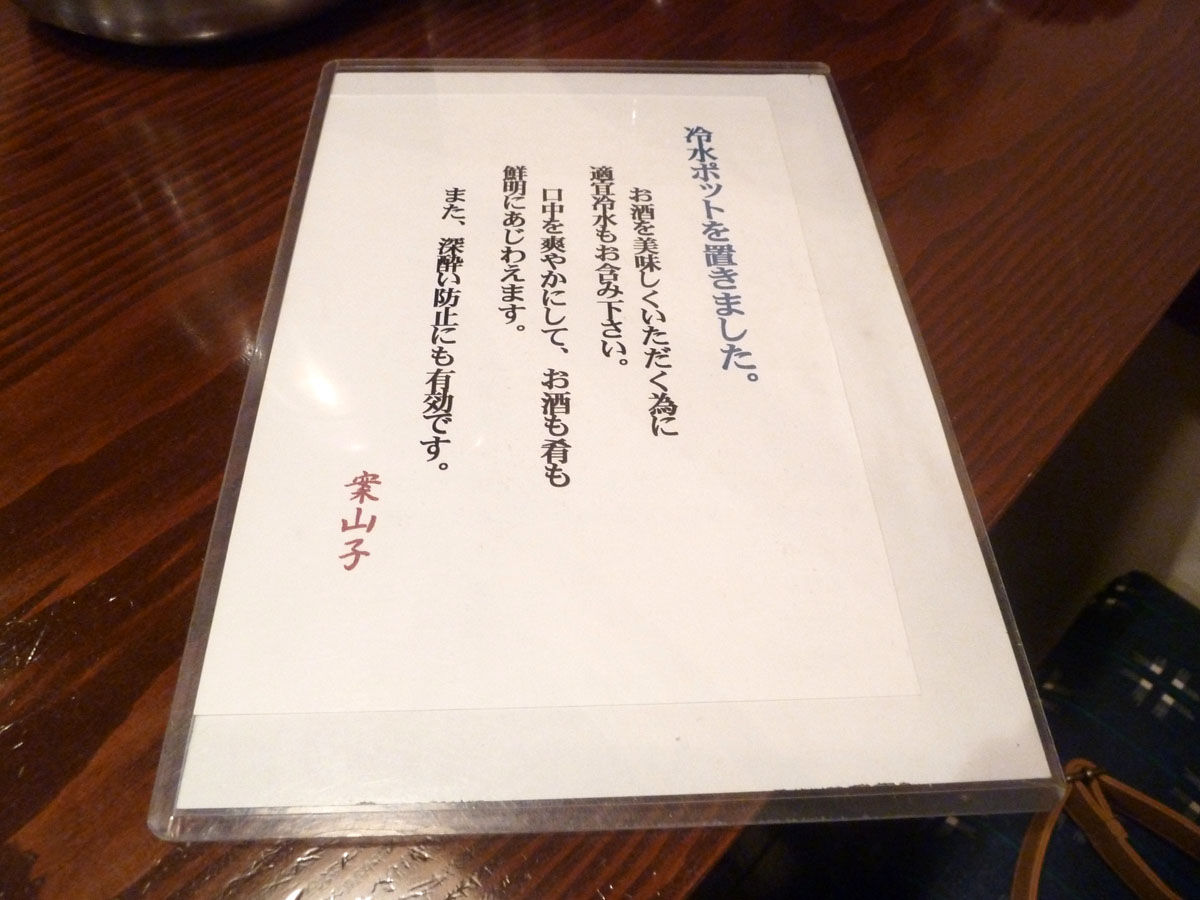 冷水ポットを置きました。
お酒を美味しくいただく為に
適宜冷水もお含み下さい。
口中を爽やかにして、お酒も肴も
鮮明にあじわえます。
また、深酔い防止にも有効です。
案山子